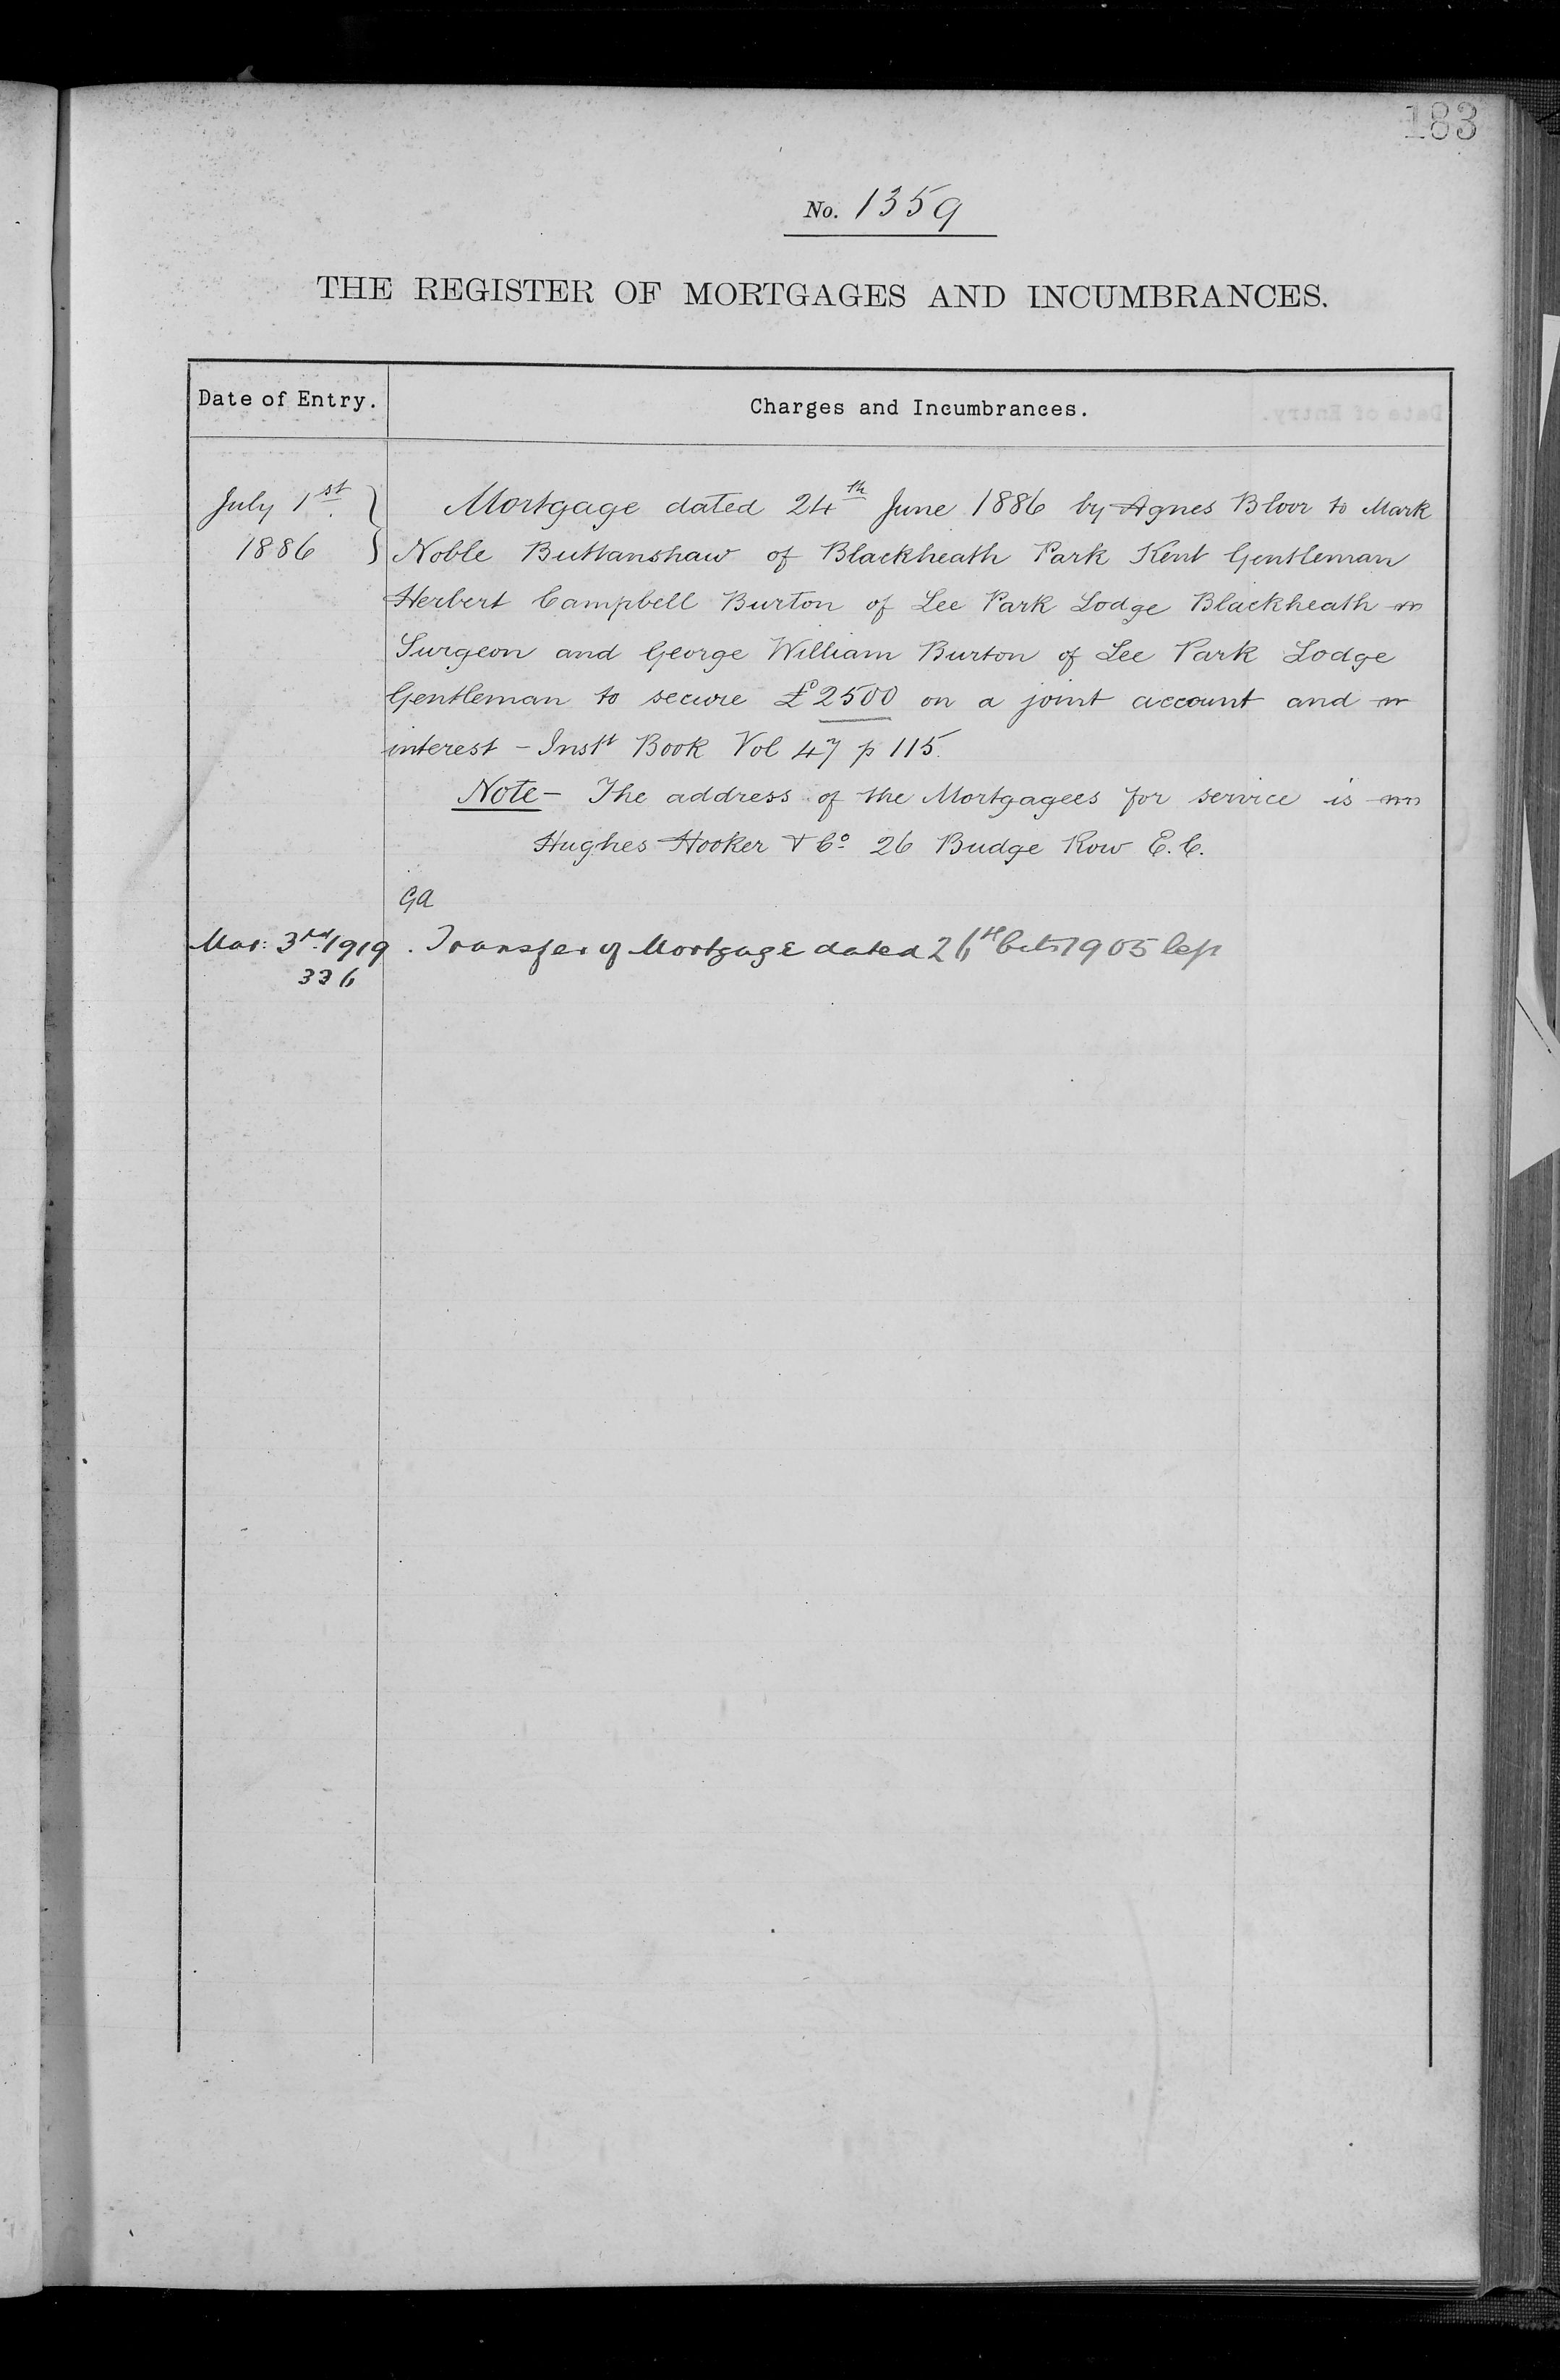 183
No. 1359
THE REGISTER OF MORTGAGES AND INCUMBRANCES.
Date of Entry.
Charges and Incumbrances.
July 1st
1886
Mortgage dated 24th June 1886 by Agnes Bloor to Mark
Noble Buttanshaw of Blackheath Park Kent Gentleman
Herbert Campbell Burton of Lee Park Lodge Blackheath
Surgeon and George William Burton of Lee Park Lodge
Gentleman to secure £2500 on a joint account and
interest - Instt Book Vol 47 p 115.
Note - The address of the Mortgagees for service is
Hughes Hooker & Co 26 Budge Row E.C.
GA
Mar: 3rd 1919
336
Transfer of Mortgage dated 26th 1905